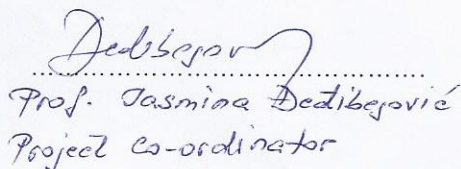 Dedibegov
Prof. Jasmina Dedibegović
Project Co-ordinator